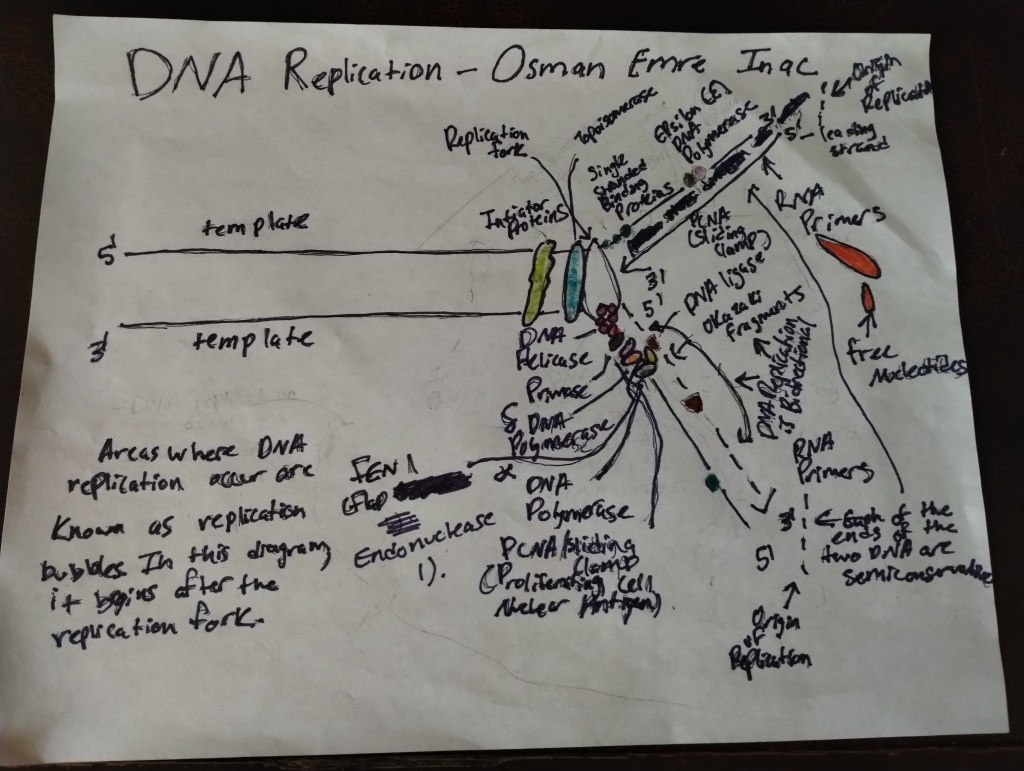 DNA Replication - Osman Emre Inac
Replication
fork
Topoisomerase
Single
Stranded
Binding
Proteins
Epsilon (ε)
DNA
Polymerase
3'
5'
Origin
of
Replication
leading
strand
Intiator
Proteins
template
5'
3'
template
RNA
Primers
PCNA
(Sliding
Clamp)
3'
5'
DNA ligase
Okazaki
Fragments
DNA Replication
is Bidirectional
free
Nucleotides
DNA
Helicase
Primase
δ DNA
Polymerase
α
DNA
Polymerase
PCNA/Sliding
Clamp
(Proliferating Cell
Nuclear Antigen)
FEN 1
(Flap
Endonuclease
1).
RNA
Primers
3'
5'
Origin
of
Replication
of the
ends of the
two DNA are
semiconservative
Areas where DNA
replication occur are
known as replication
bubbles. In this diagram,
it begins after the
replication fork.